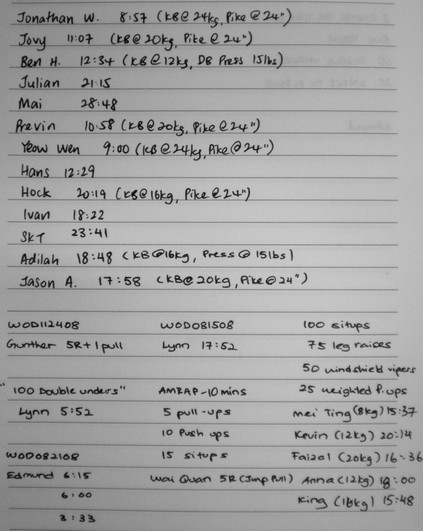 Jonathan W. 8:57 (KB@24kg, Pike @ 24")
Jovy 11:07 (KB@20kg, Pike @ 24")
Ben H. 12:34 (KB@12kg, DB Press 15lbs)
Julian 21:15
Mai 28:48
Previn 10:58 (KB@20kg, Pike@24")
Yeow Wen 9:00 (KB@24kg, Pike@24")
Hans 12:29
Hock 20:19 (KB@16kg, Pike@24")
Ivan 18:22
SKT 23:41
Adilah 18:48 (KB@16kg, Press@15lbs)
Jason A. 17:58 (KB@20kg, Pike@24")
WOD112408
Gunther 5R+1pull
"100 Double unders"
Lynn 5:52
WOD082108
Edmund 6:15
6:00
3:33
WOD081508
Lynn 17:52
AMRAP-10mins
5 pull-ups
10 Push ups
15 situps
Wai Quan 5R (Jmp Pull)
100 situps
75 leg raises
50 windshield vipers
25 weighted P.ups
Mei Ting (8kg) 15:37
Kevin (12kg) 20:14
Faizal (20kg) 16:36
Anna (12kg) 18:00
King (16kg) 15:48